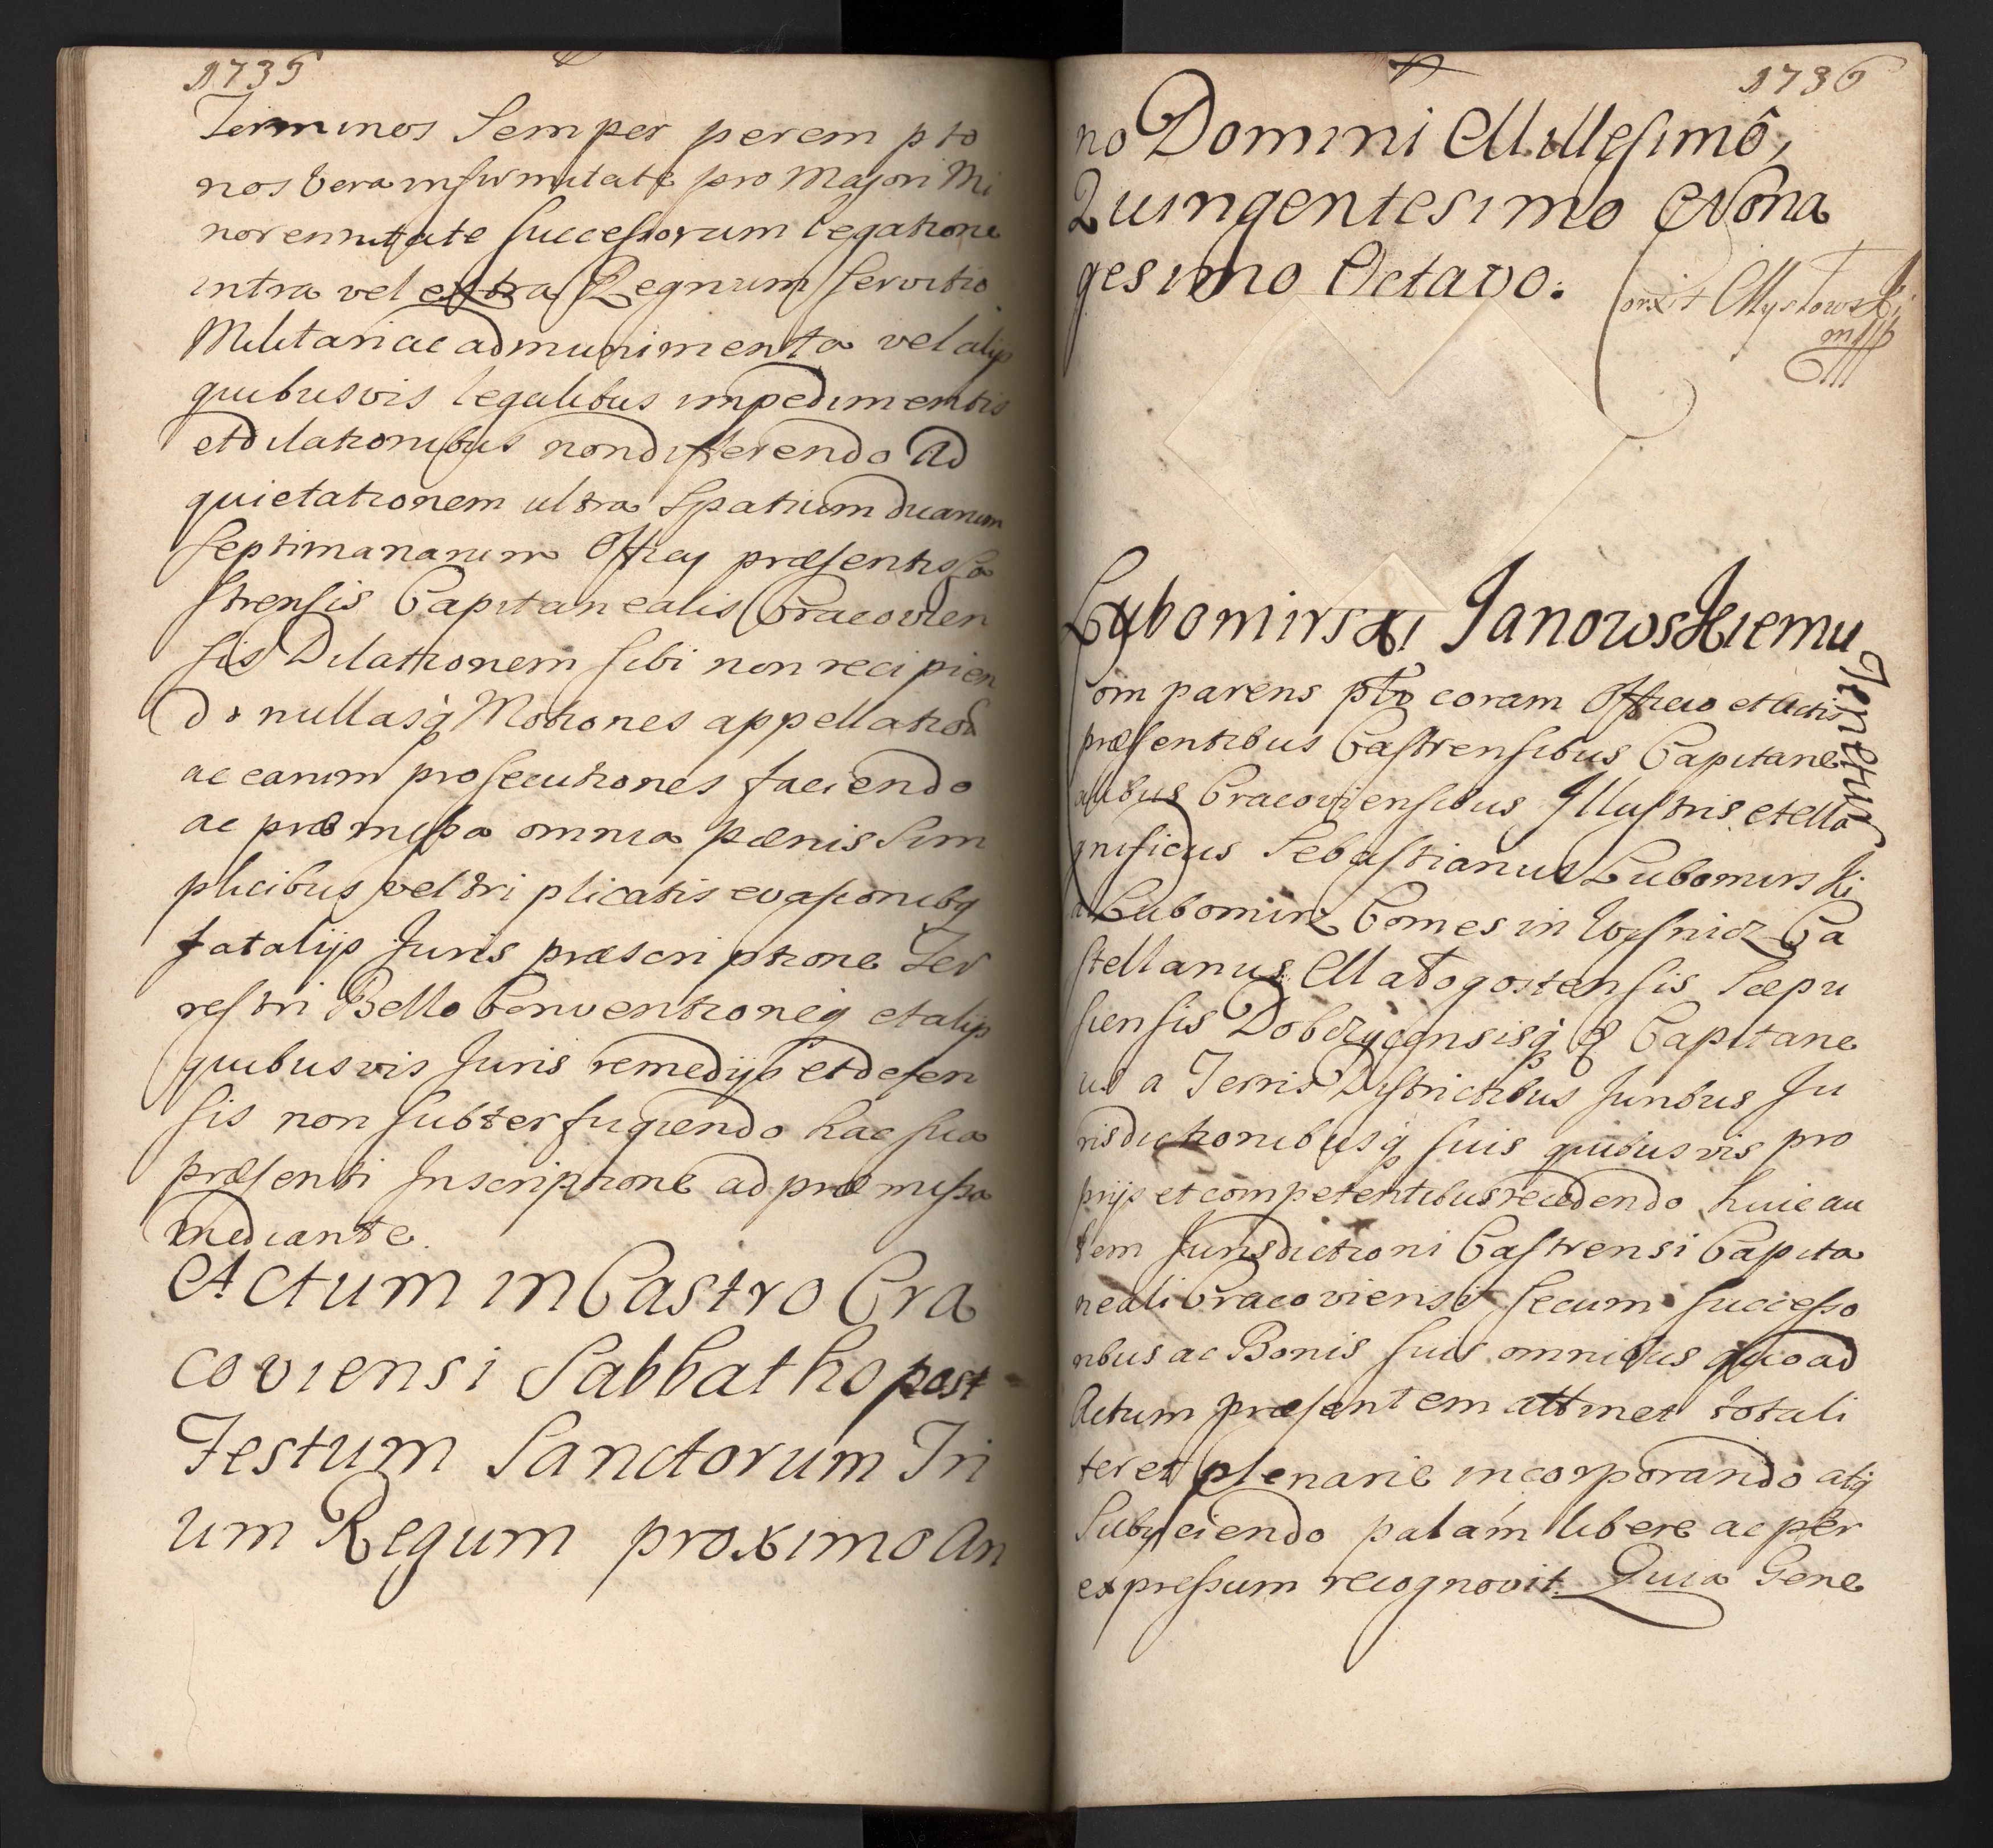 1735
Terminos Semper perempto
nos vera infirmitate pro Majori Mi
norennitate successorum legatione
intra vel extra Regnum servitio
Militari ac ad munimenta vel alijs
quibusvis legalibus impedimentis
et dilationibus non differendo Ad
quietationem ultra Spatium duarum
septimanarum Officij præsentis Ca
strensis Capitanealis Cracovien
sis Dilationem sibi non recipien
do nullasq Motiones appellation
ac earum prosecutiones faciendo
ac præmissa omnia pœnis Sim
plicibus vel tri plicatis evasionibq
fatalijs Juris præscriptione Ter
restri Bello Conventioneq et alijs
quibusvis Juris remedijs et defen
sis non subterfugiendo hac sua
præsenti Inscriptione ad præmissa
mediante.
Actum in Castro Cra
coviensi Sabbatho post
Festum Sanctorum Tri
um Regum proximo An
1736
no Domini Millesimô,
Quingentesimo Nona
gesimo Octavo.
Lubomirski Janowskiemu
Tenetur
Comparens pto coram Officio et Actis
præsentibus Castrensibus Capitane
alibus Cracoviensibus Illustris et Ma
gnificus Sebastianus Lubomirski
a Lubomirz Comes in Wysnicz Ca
stellanus Małogostensis Scepu
siensis Dobczycensisq & Capitane
us a Terris Districtibus Juribus Ju
risdictionibusq suis quibusvis pro
prijs et competentibus recedendo huic au
tem Jurisdictioni Castrensi Capita
neali Cracoviensi secum successo
ribus ac Bonis suis omnibus quoad
Actum præsentem attinet totali
ter et plenarie incorporando atq
Subijciendo palam libere ac per
expressum recognovit. Quia Gene